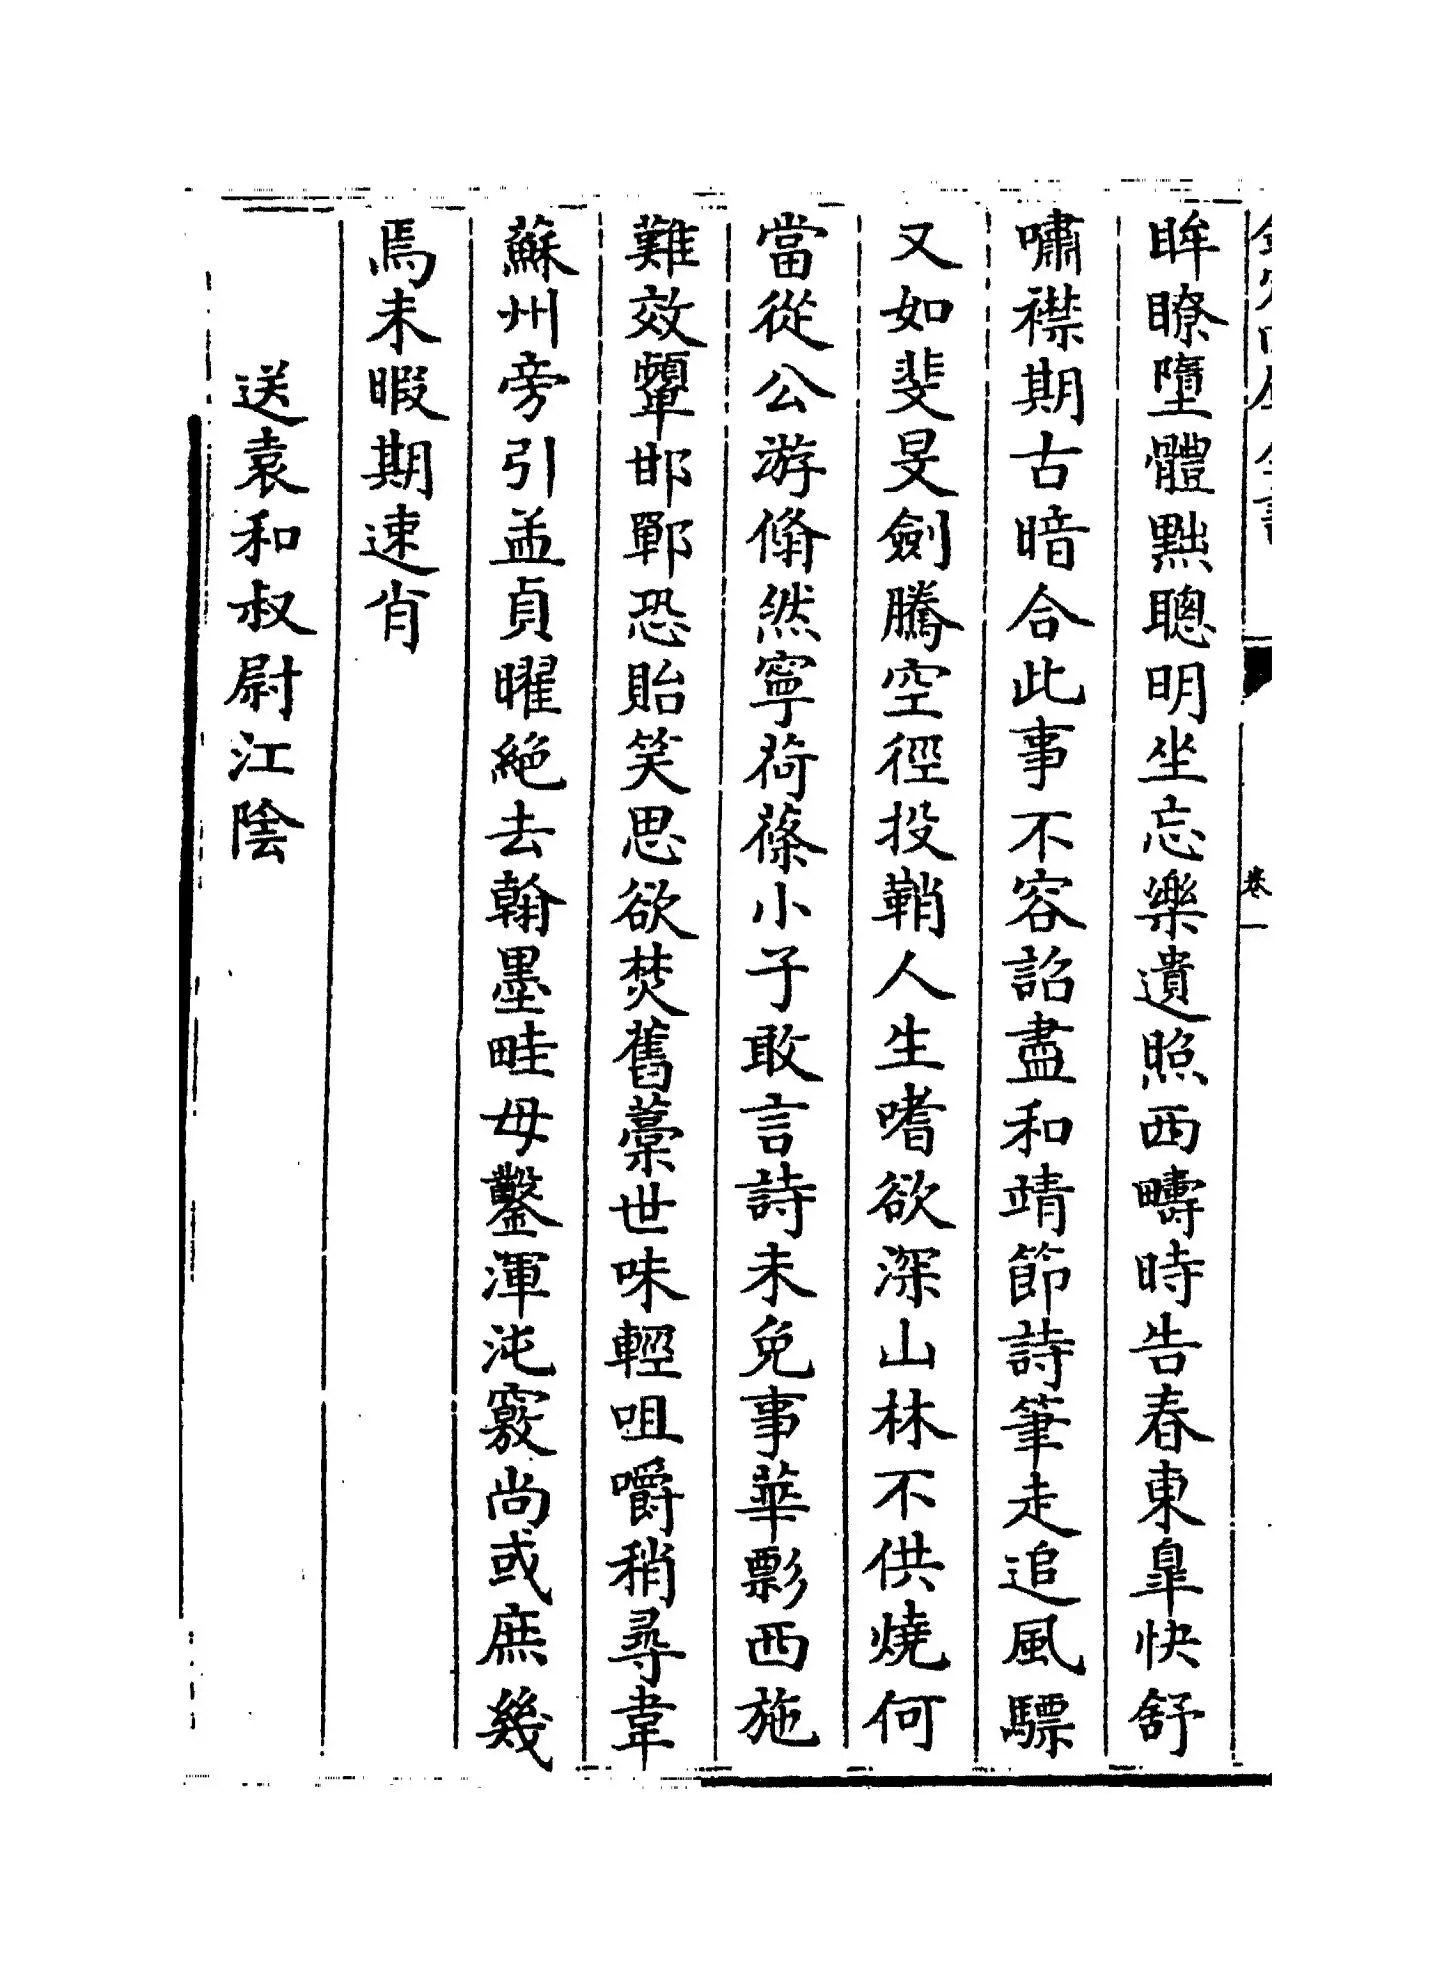 眸瞭墮體黜聰明坐忘樂遺照西疇時告春東臯快舒
嘯襟期古暗合此事不容詔盡和靖節詩筆走追風驃
又如斐旻劍騰空徑投鞘人生嗜欲深山林不供燒何
當從公游翛然寧荷蓧小子敢言詩未免事華剽西施
難效顰邯鄲恐貽笑思欲焚舊藁世味輕咀嚼稍尋韋
蘇州旁引孟貞曜絶去翰墨畦毋鑿渾沌竅尚或庶幾
焉未暇期速肖
送袁和叔尉江陰
卷一